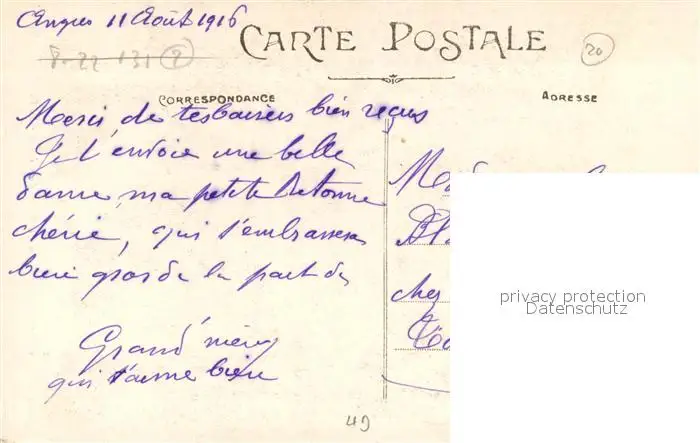 Angers 11 Août 1916
8-22 131 8
CARTE POSTALE
20
CORRESPONDANCE
ADRESSE
Merci de tes baisers bien reçus
Je t'envoie une belle
dame, ma petite Bretonne
chérie, qui t'embrassera
bien gros de la part de
Grand'mère
qui t'aime bien
chez
privacy protection
Datenschutz
49